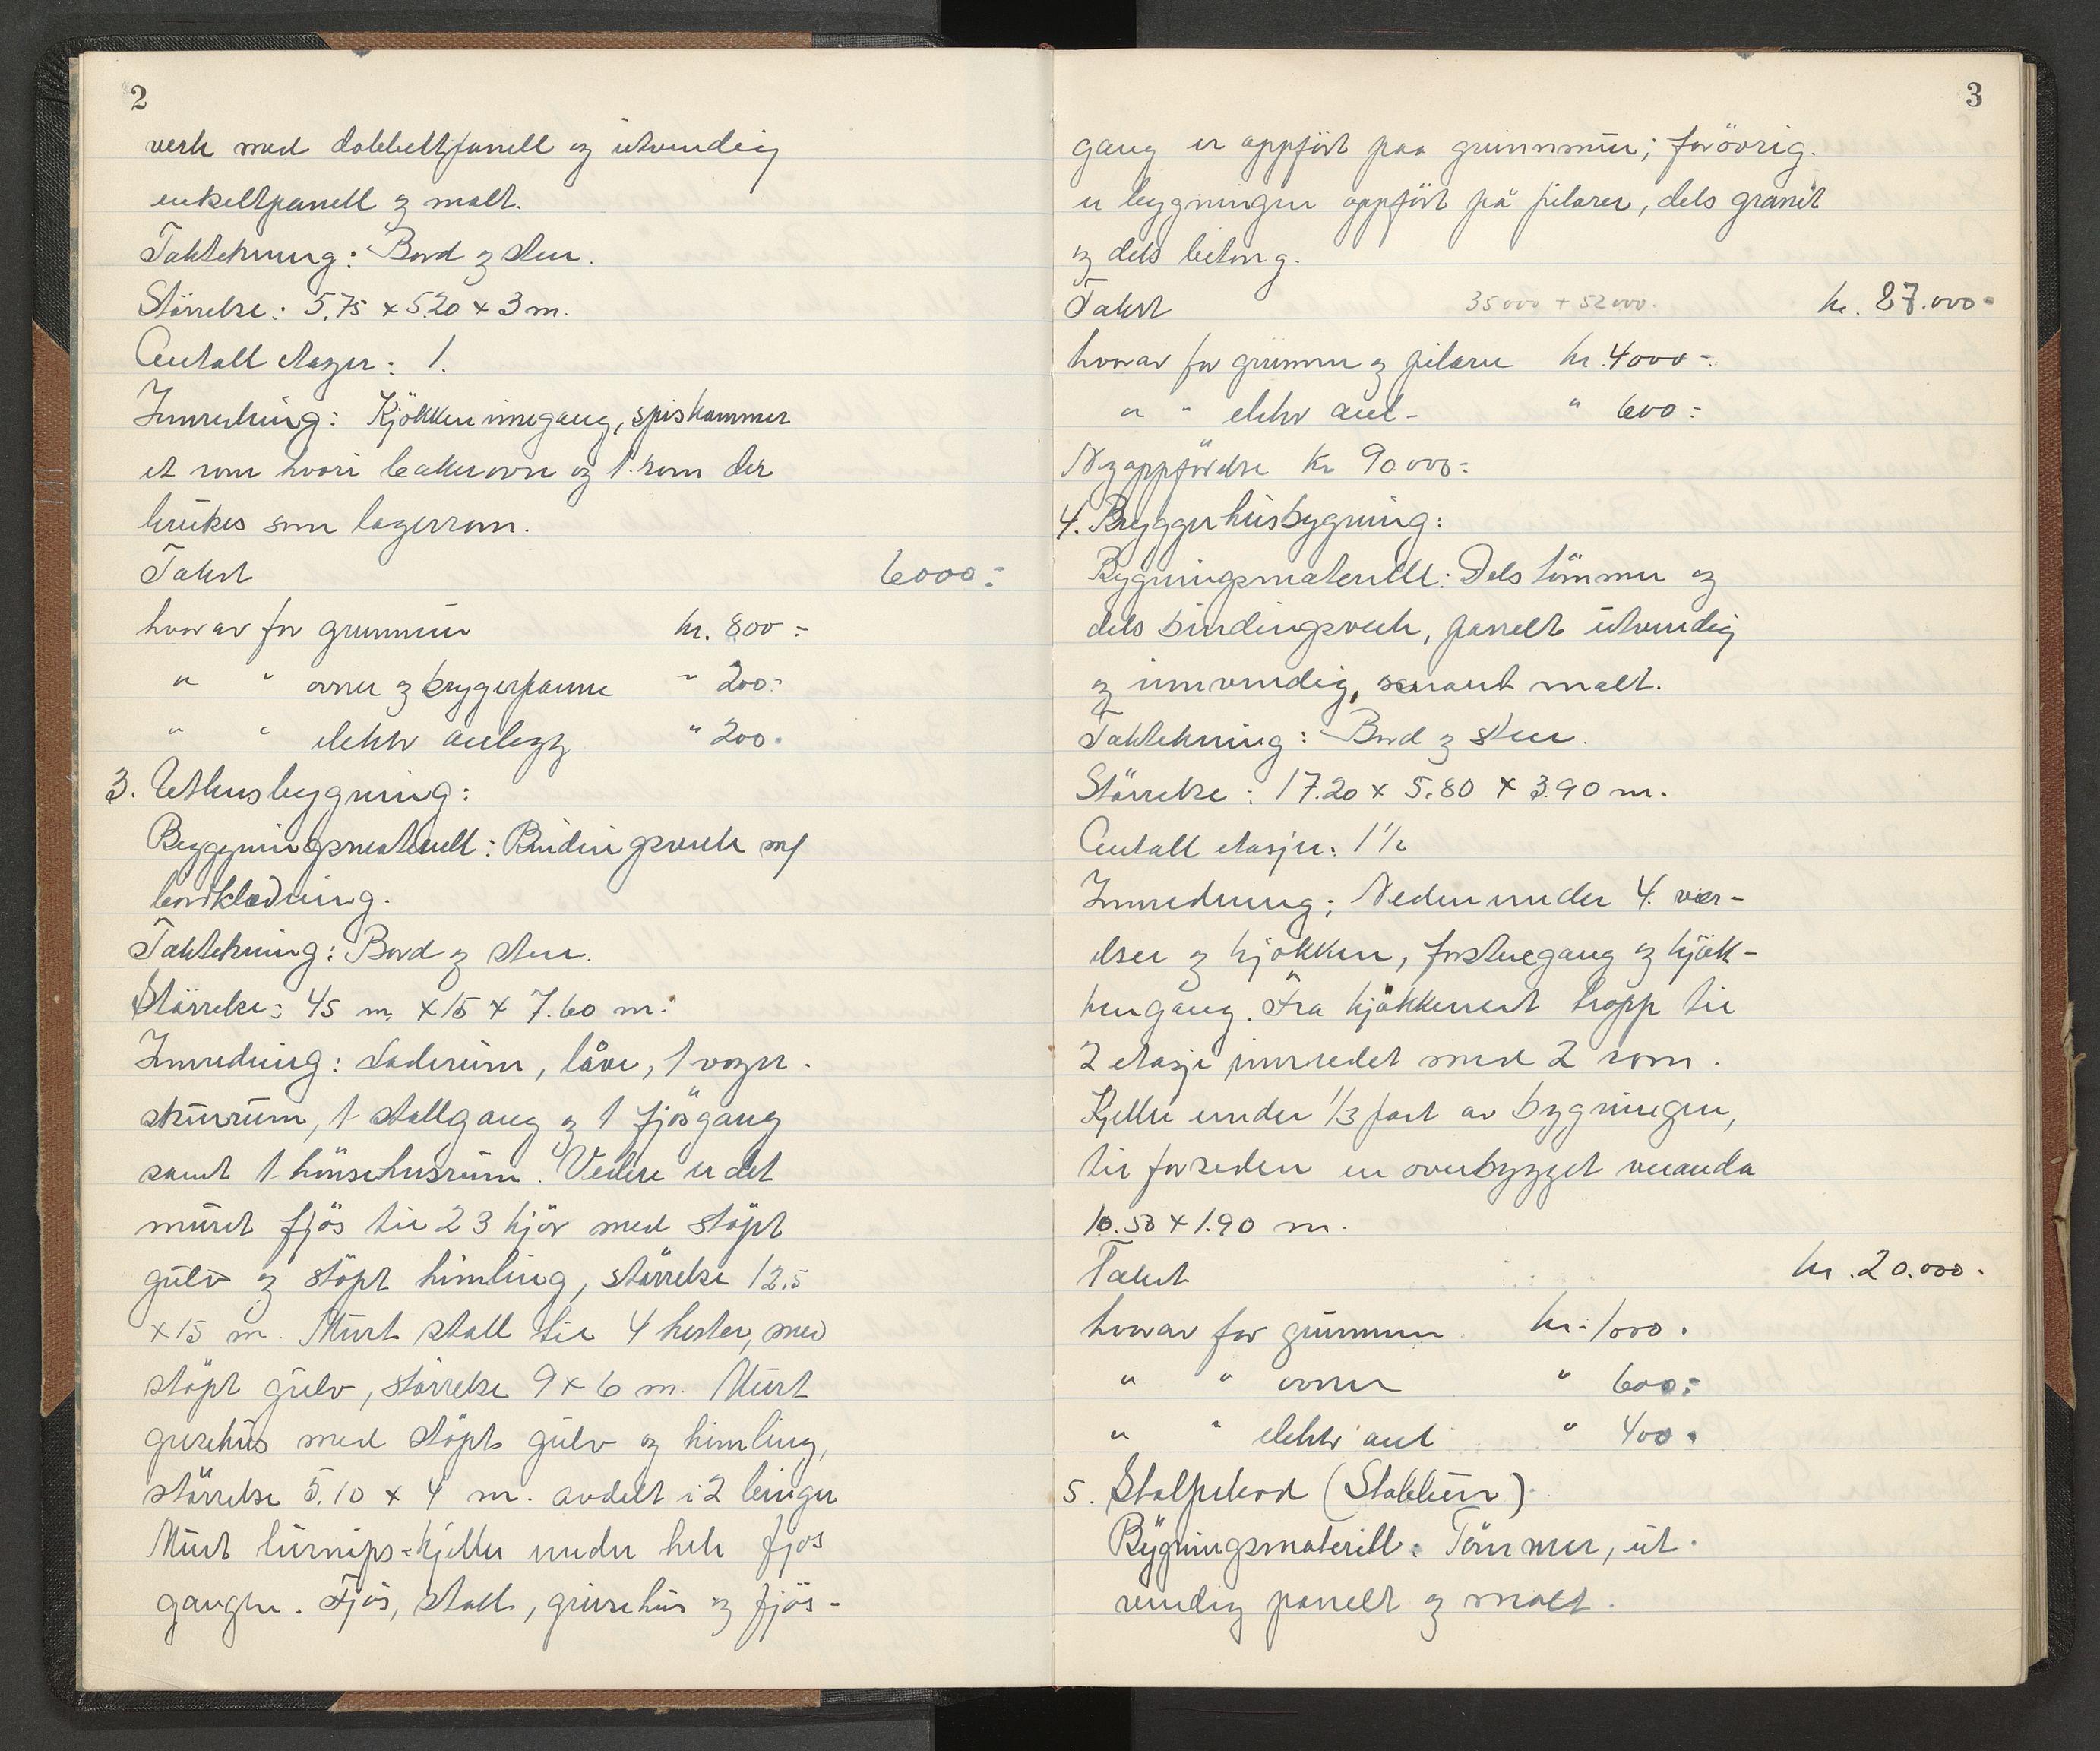 2
verk med dobbeltpanell og utvendig
enkeltpanell og malt.
Taktekning: Bord og sten.
Størrelse: 5,75 x 5.20 x 3 m.
Antall etager: 1.
Innredning: Kjökken inngang, spiskammer
et rom hvori bakerovn og 1 rom der
brukes som lagerrom.
Takst 6000:-
hvorav for grunnmur kr. 800:-
" " ovner og bryggerpanne " 200:-
" " elektr anlegg " 200.
3. Uthusbygning:
Byggningsmateriell: Bindingsverk m/
bordklædning.
Taktekning: Bord og sten.
Störrelse: 45 m. x 15 x 7.60 m.
Innredning: Laderum, låve, 1 vogn-
skurrum, 1 stallgang og 1 fjösgang
samt 1 hönsehusrum. Videre er det
muret fjös til 23 kjör med stöpt
gulv og stöpt himling, störrelse 12.5
x 15 m. Murt stall til 4 hester, med
stöpt gulv, störrelse 9 x 6 m. Murt
grisehus med stöpt gulv og himling,
störrelse 5.10 x 4 m. avdelt i 2 binger
Murt turnips-kjeller under hele fjös
gangen. Fjös, stall, grisehus og fjös-
3
gang er oppfört paa grunnmur; forövrig
er bygningen oppfört på pilarer, dels granit
og dels betong.
Takst 35000 + 52000. kr. 87.000-
hvorav for grunnm og pilarer kr. 4000-.
" " elektr anl- " 600:-
Nyoppförelse Kr 90.000:-
4. Bryggerhusbygning:
Bygningsmateriell: Dels tömmer og
dels bindingsverk, panelt utvendig
og innvendig, samt malt.
Taktekning: Bord og sten.
Störrelse: 17.20 x 5.80 x 3.90 m.
Antall etasjer: 1 1/2
Innredning: Nedenunder 4 vær-
elser og kjökken, forstuegang og kjök-
kengang. Fra kjökkenet tropp til
2 etasje innredet med 2 rom.
Kjeller under 1/3 part av bygningen,
til forsiden en overbygget veranda
10.50 x 1.90 m.
Takst kr. 20.000.
hvorav for grunnmur kr. 1000.
" " ovner " 600:-
" " elektr anl " 400.
5. Stolpebod (Stabbur)
Bygningsmateriell: Tömmer, ut-
vendig panelt og malt.